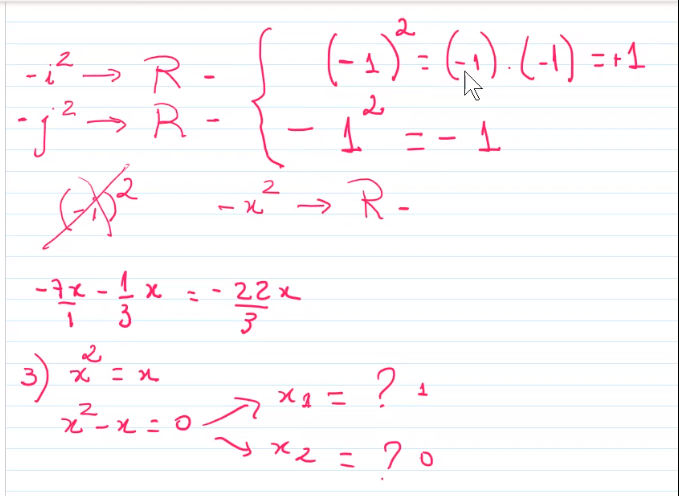 -i² → R - { (-1)² = (-1) . (-1) = +1
-j² → R - { - 1² = - 1
(-1)² -x² → R -
-7x/1 - 1/3 x = - 22x/3
3) x² = x
x² - x = 0 → x1 = ? 1
→ x2 = ? 0